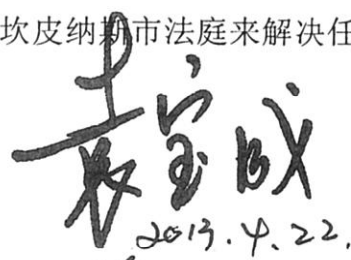 坎皮纳斯市法庭来解决任
袁宝成
2013.4.22.